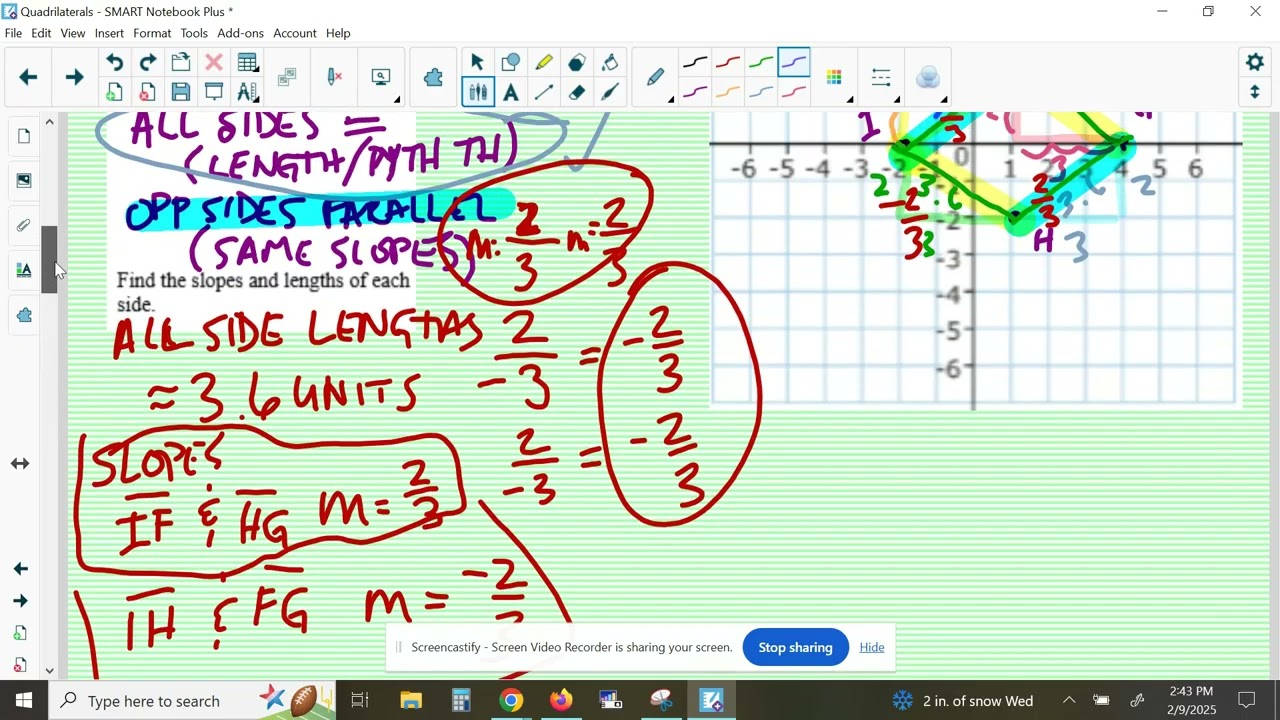 Quadrilaterals - SMART Notebook Plus *
File Edit View Insert Format Tools Add-ons Account Help
ALL SIDES =
(LENGTH/PYTH TH)
OPP SIDES PARALLEL
(SAME SLOPES)
m: 2/3 m = 2/3
Find the slopes and lengths of each
side.
ALL SIDE LENGTHS
≈ 3.6 UNITS
2/-3 = -2/3
2/-3 = -2/3
SLOPES
IF & HG m = 2/3
IH & FG m = -2/3
I
3
-6 -5 -4 -3 -2 0 1 2 3 4 5 6
2 3.6 2/3 3.6 2
-2/3 3 -2 H 3
-3
-4
-5
-6
Screencastify - Screen Video Recorder is sharing your screen. Stop sharing Hide
Type here to search
2 in. of snow Wed
2:43 PM
2/9/2025